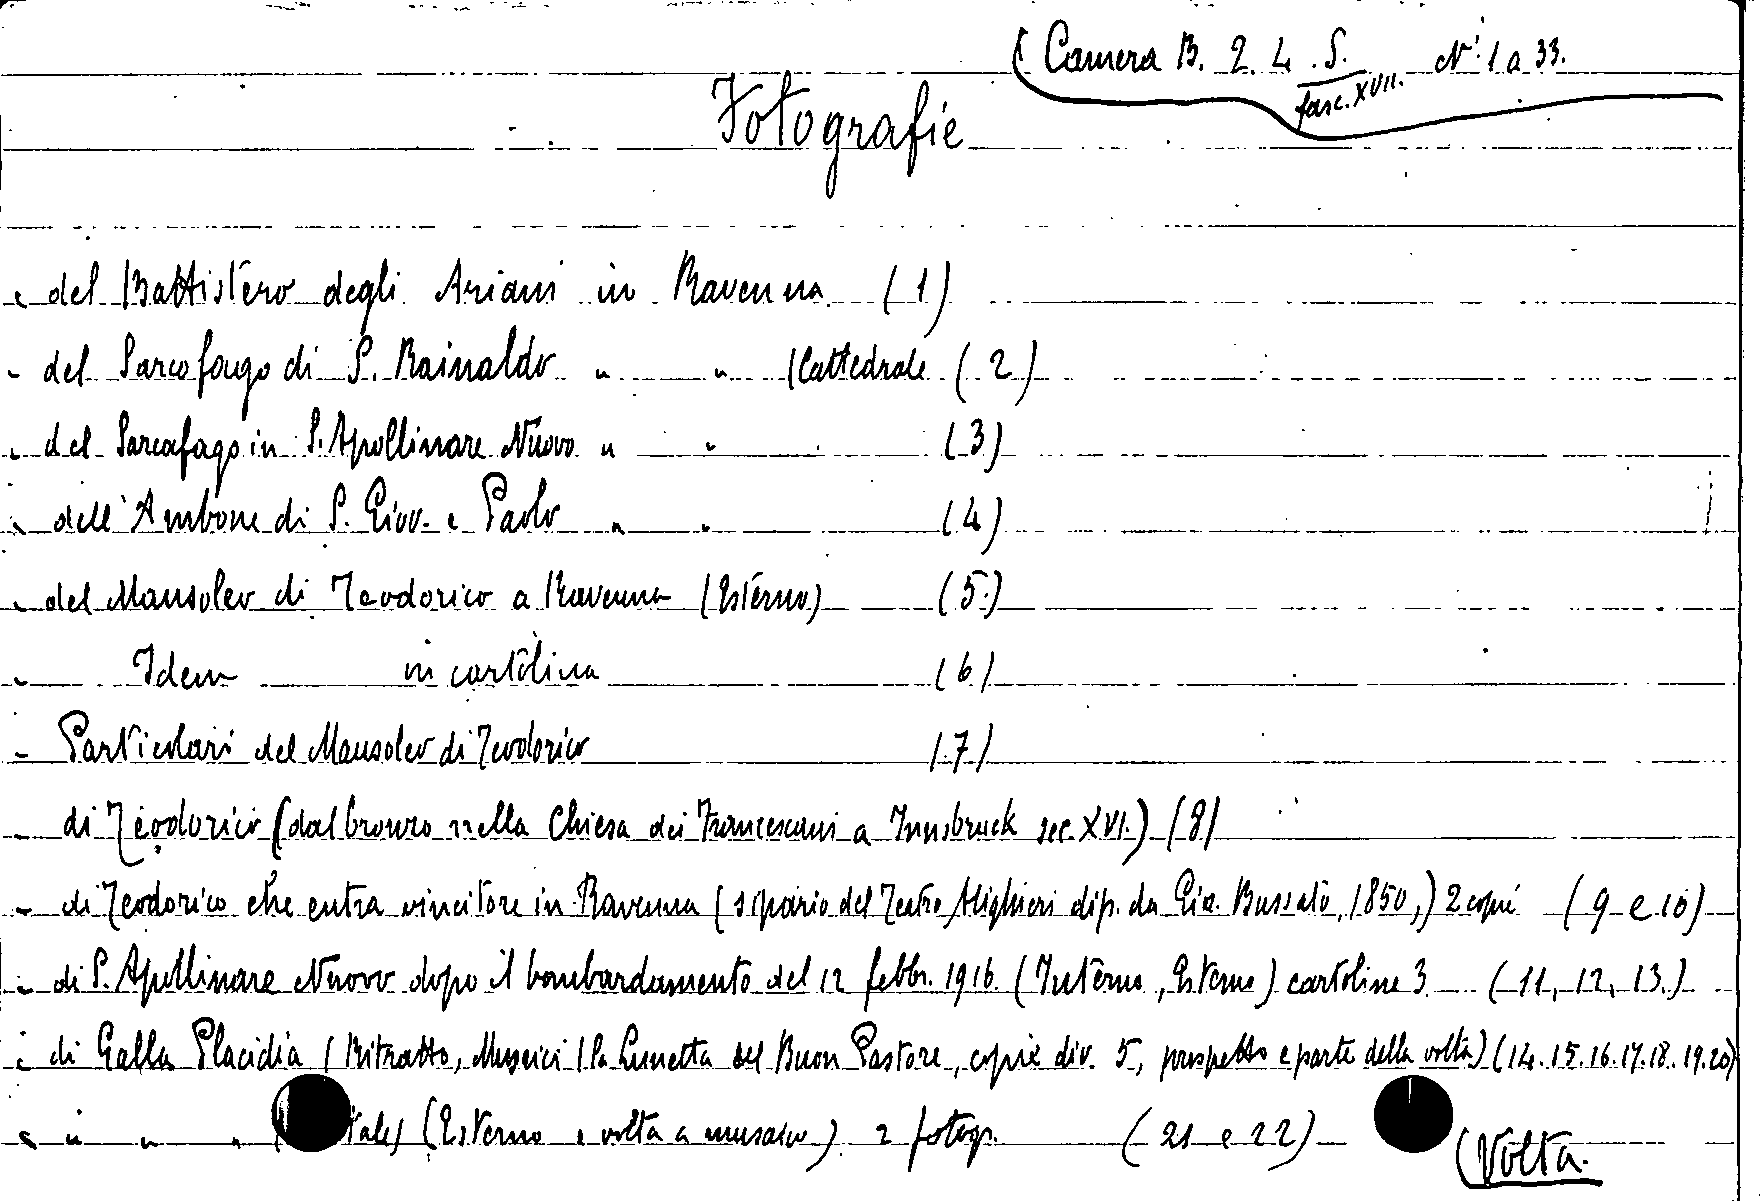 Camera B. 2. 4. S. Ni 1 a 33.
fasc. XVII.
Fotografie
" del Battistero degli Ariani in Ravenna (1)
" del Sarcofago di S. Rainaldo " " (Cattedrale (2)
" del Sarcofago in S. Apollinare Nuovo " " (3)
" dell'Ambone di S. Giov. e Paolo " " (4)
" del Mausoleo di Teodorico a Ravenna (Esterno) (5.)
" Idem in cartolina (6)
" Particolari del Mausoleo di Teodorico (7)
" di Teodorico (dal bronzo nella Chiesa dei Francescani a Innsbruck sec. XVI.) (8)
" di Teodorico che entra vincitore in Ravenna (sipario del Teatro Alighieri dip. da Gia. Bussato, 1850,) 2 copie (9 e 10)
" di S. Apollinare Nuovo dopo il bombardamento del 12 febbr. 1916. (Interno, Esterno) cartoline 3 (11, 12, 13.)
" di Galla Placidia (Ritratto, Musaici (la Lunetta del Buon Pastore, copie div. 5, prospetto e parte della volta) (14. 15. 16. 17. 18. 19. 20)
" " " " tale) (Esterno e volta a musaico) 2 fotogr. (21 e 22)
(Volta.